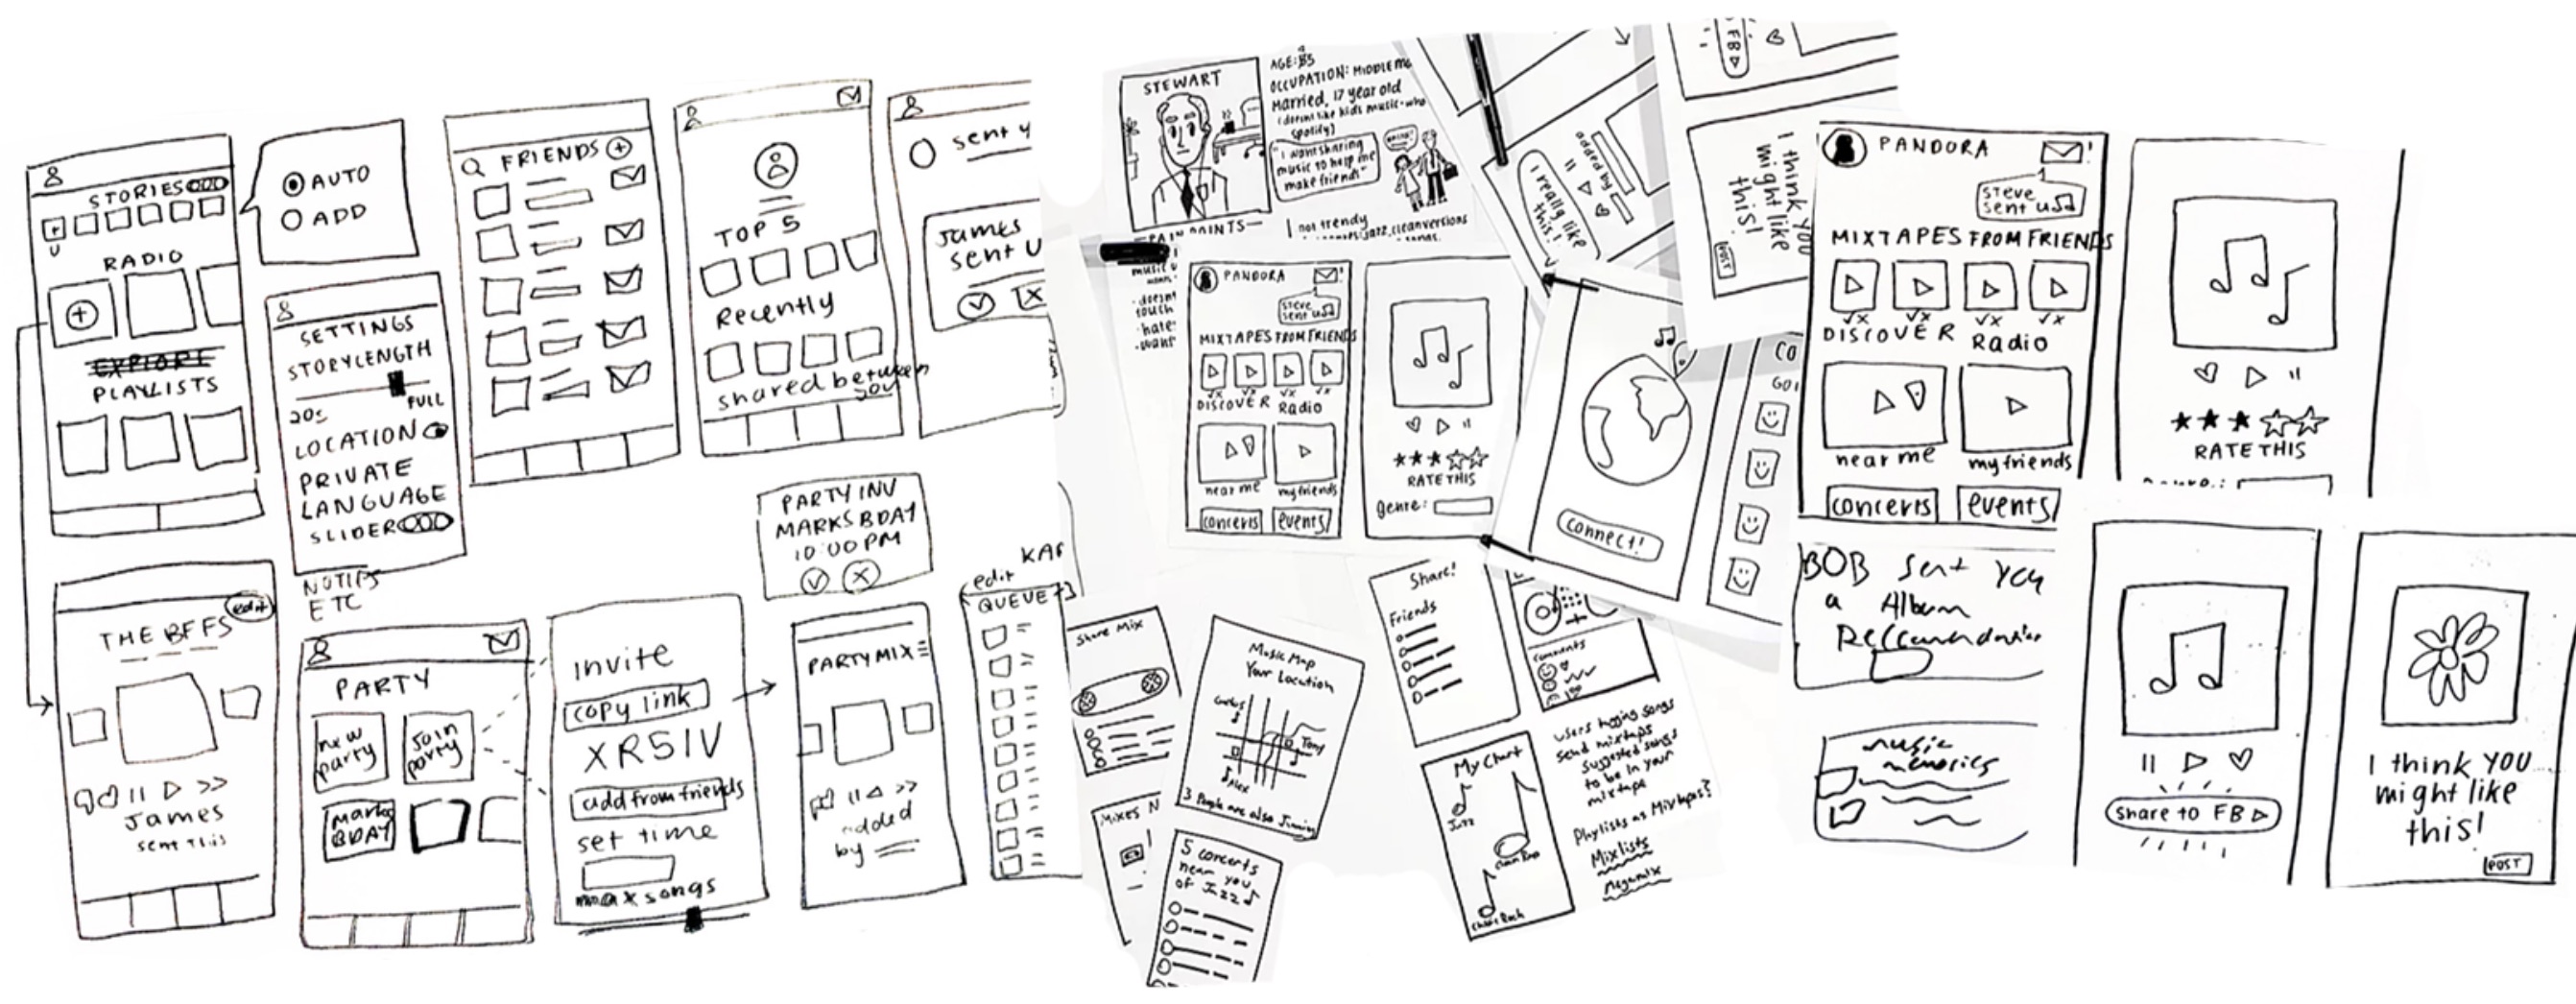 STORIES
RADIO
EXPLORE
PLAYLISTS
AUTO
ADD
SETTINGS
STORYLENGTH
20s FULL
LOCATION
PRIVATE
LANGUAGE
SLIDER
NOTIFS
ETC
FRIENDS
TOP 5
Recently
shared between
you
sent y
James
sent u
THE BFFS
edit
James
sent this
PARTY
new
party
Join
party
marks
BDAY
invite
copy link
XR5IV
add from friends
set time
max songs
PARTY INV
MARKS BDAY
10:00 PM
PARTY MIX
added
by
edit
QUEUE
STEWART
AGE:
OCCUPATION: MIDDLE
married, 17 year old
spotify)
"I want sharing
music to help me
make friends"
not trendy
PANDORA
Steve
sent u
MIXTAPES FROM FRIENDS
DISCOVER Radio
near me my friends
concerts events
RATE THIS
genre:
I really like
this!
added by
FB
I think you
might like
this!
POST
connect!
CO
GOI
Share Mix
Music Map
Your Location
Tony
Alex
MIXES N
5 concerts
near you
of Jazz
Share!
Friends
comments
My Chart
Jazz
Classic Rock
users tagging songs
send mixtapes
suggested songs
to be in your
mixtape
Playlists as Mixtapes?
Mixlists
Megamix
PANDORA
Steve
sent u
MIXTAPES FROM FRIENDS
DISCOVER Radio
near me my friends
concerts events
RATE THIS
BOB sent you
a Album
music
memories
share to FB
I think you
might like
this!
POST